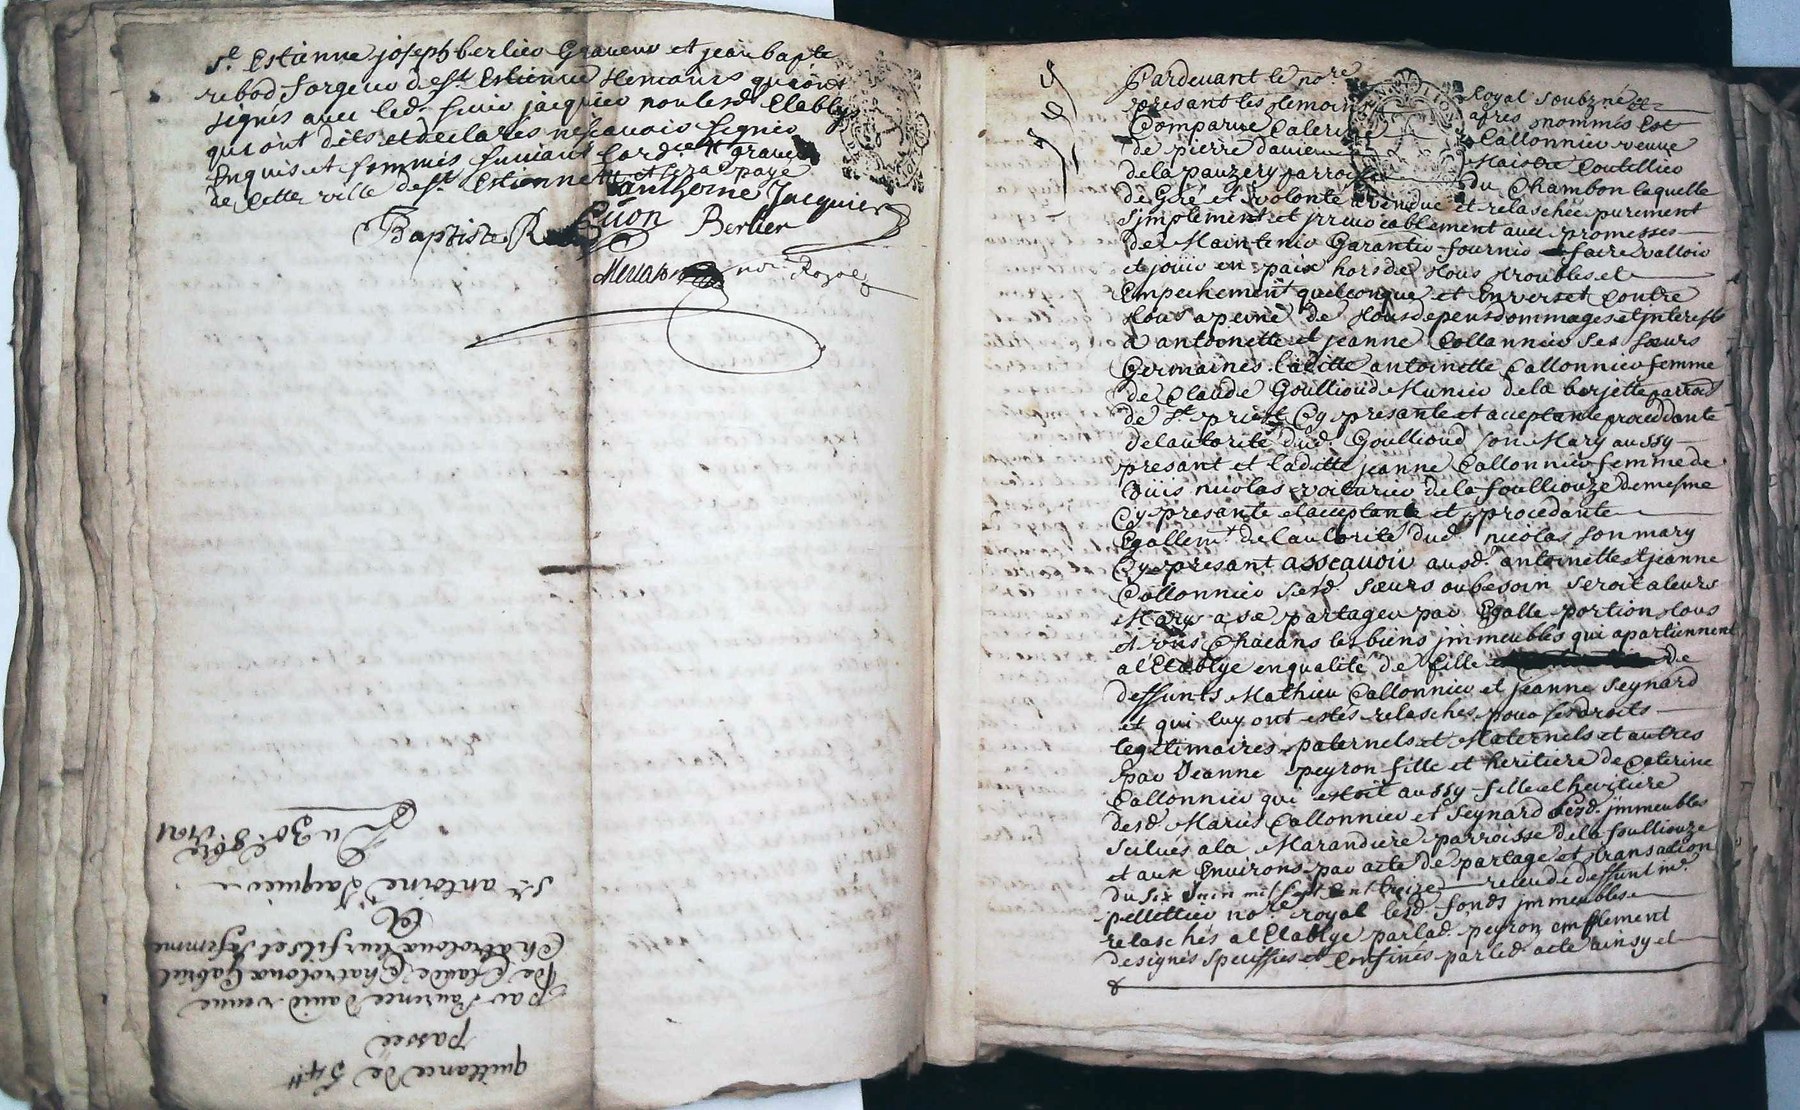 sr Estienne joseph berlier Graveur et jean bapte
rebod forgeur de st Estienne temoins qui ont
signés avec led. sieur jacquier non lesd Etablys
qui ont dit et declarés ne scavoir signer
Enquis et sommés suivant lord ce
de cette ville de st Estienne et sera payé
anthoine Jacquier
Baptiste Berlier
nore Royal
quittance de 54 tt
passée
par Laurence David veuve
De Claude Chatrelona Gabriel
Chatrelona leur fils et sa femme
A
sr antoine Jacquier
Du 30e 8bre
Pardevant le nore Royal soubzné et
presant les temoins apres nommés Est
Comparue Caterine Callonnier veuve
de pierre davier Maistre Coutellier
de la pauzery parroisse du Chambon laquelle
de Gré et volonté a vendue et relaschée purement
simplement et jrrevocablement avec promesses
de Maintenir Garantir fournir faire valloir
et jouir en paix hors de tous troubles et
Empechement quelconque et Envers et Contre
tous a peine de tous depens dommages et jnterests
a antoinette et jeanne Callonnier ses sœurs
Germaines. laditte antoinette Callonnier femme
de Claude Goullioud Munier de la berjette parroisse
de st priest Cy presante et acceptante procedante
de lautorité dud. Goullioud son Mary aussy
presant et laditte jeanne Callonnier femme de
nicolas voiturier de la foulliouze de mesme
Cy presante et acceptante et procedante
Egallemt de lautorité dud nicolas son mary
Cy presant asscavoir ausd. antoinette et jeanne
Callonnier sesd. sœurs ou besoin seroit a leurs
Marys a se partager par Egalle portion tous
et uns Chacuns les biens jmmeubles qui apartiennent
a l'Etablye en qualité de fille de
deffunts Mathieu Callonnier et jeanne seynard
et qui luy ont estés relaschés pour ses droits
legitimaires paternels et Maternels et autres
par Jeanne peyron fille et heritiere de Caterine
Callonnier qui estoit aussy fille et heritiere
desd. Mariés Callonnier et seynard lesd. jmmeubles
scitués a la Marandiere parroisse de la foulliouze
et aux Environs par acte de partage et transaction
du six Juin mil sept Cent treize receu de deffunt me.
pellettier nore royal lesd. fonds jmmeubles
relaschés a l'Etablye par lad. peyron amplement
designés speciffiés et Confinés par led. acte ainsy et